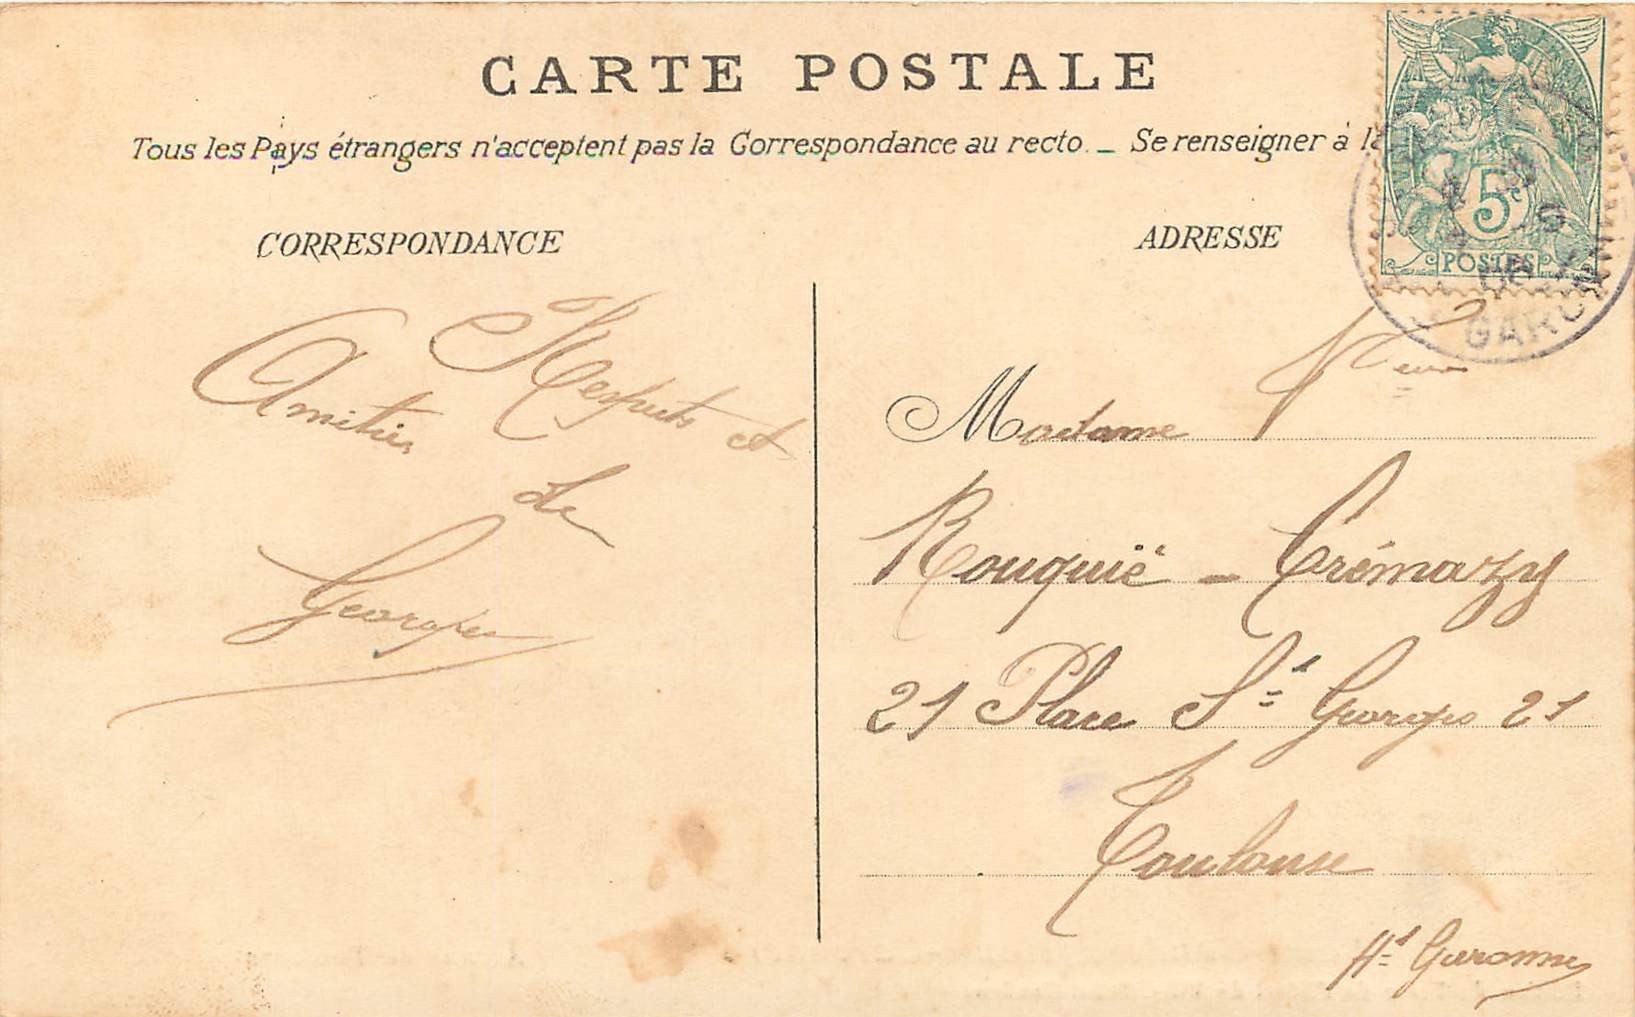 CARTE POSTALE
Tous les Pays étrangers n'acceptent pas la Correspondance au recto. _ Se renseigner à la
CORRESPONDANCE
ADRESSE
5c
POSTES
GARONN
Respects et
Amitiés
de
Georges
Madame Veuve
Rouquié - Crémazy
21 Place St Georges 21
Toulouse
Hte Garonne